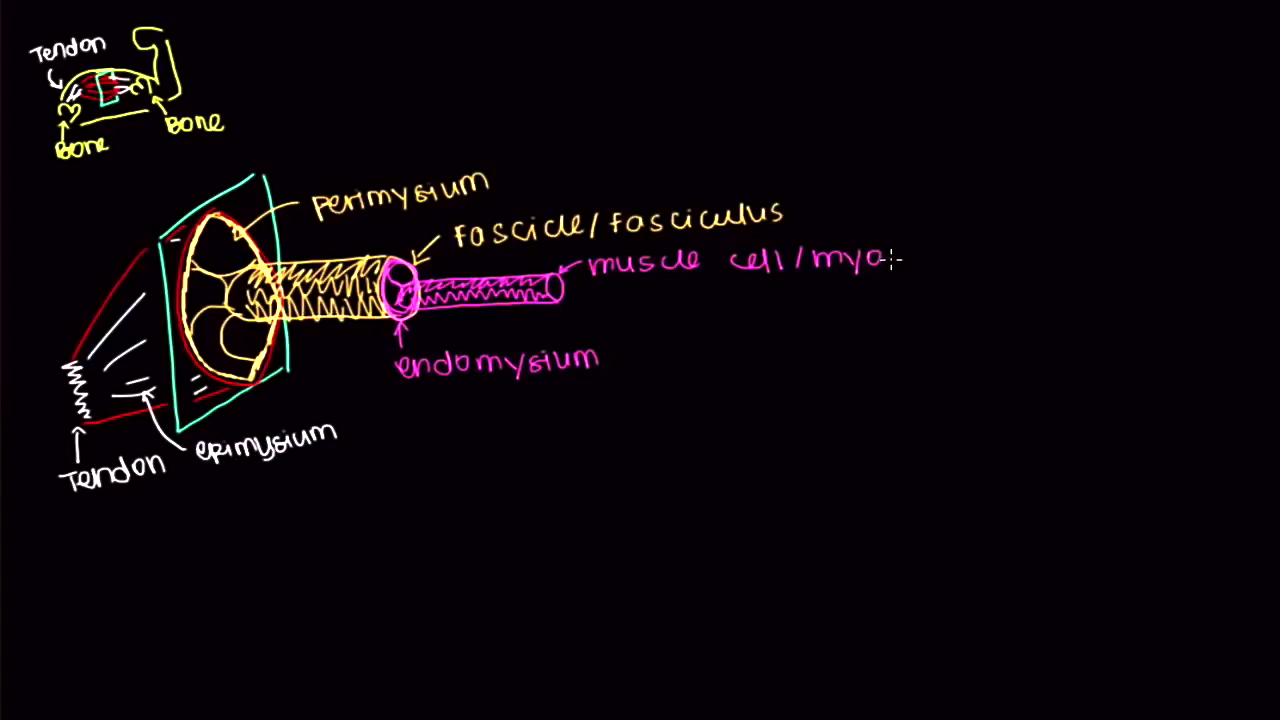 Tendon
Bone
Bone
perimysium
fascicle/fasciculus
muscle cell/myo
endomysium
epimysium
Tendon